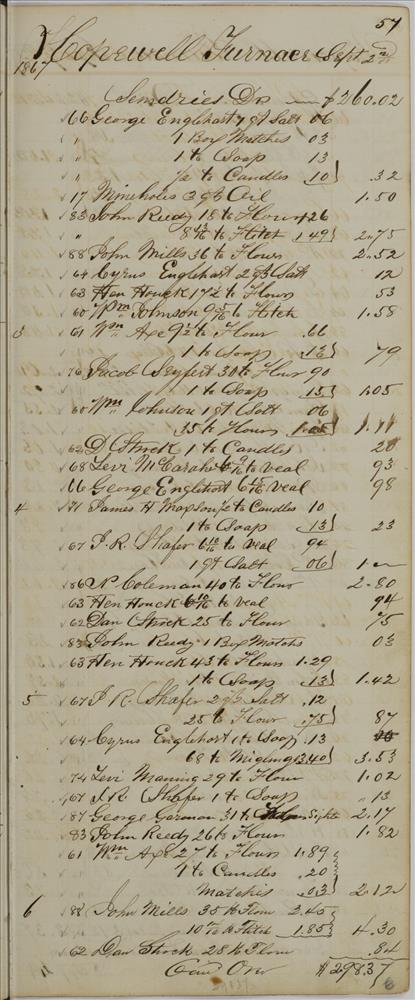 57
Hopewell Furnace Sept. 2nd
1867
Sundries Drs $260.02
66 George Englehart 1 qt Salt 06
" 1 Box Matches 03
" 1 lb Soap 13
" 1/2 lb Candles 10 .32
17 Mineholes 3 gls Oil 1.50
83 John Reedy 18 lb Flour 1.26
" lb Flitch 1.49 2.75
88 John Mills 36 lb Flour 2.52
64 Cyrus Englehart 2 qts Salt 12
63 Hen Houck 17 1/2 lb Flour 53
60 Wm Johnson lb Flitch 1.58
3 61 Wm Axe 9 1/2 lb Flour .66
1 lb Soap .13 79
76 Jacob Seyfert 30 lb Flour 90
1 lb Soap 15 1.05
60 Wm Johnson 1 qt Salt 06
35 lb Flour 1.05 1.11
62 D Strock 1 lb Candles 20
68 Levi McCarah lb veal 93
66 George Englehart lb veal 98
4 71 James H Mapson 1/2 lb Candles 10
1 lb Soap 13 23
67 J. R. Shafer 6 10/16 lb veal 94
1 qt Salt 06 1 —
86 N Coleman 40 lb Flour 2.80
63 Hen Houck lb veal 94
62 Dan Strock 25 lb Flour 75
83 John Reedy 1 Box Matchs 03
63 Hen Houck 43 lb Flour 1.29
1 lb Soap .13 1.42
5 67 J R Shafer 2 qts Salt .12
25 lb Flour .75 87
64 Cyrus Englehart 1 lb Soap .13
68 lb Midlings 3.40 3.53
74 Levi Manning 29 lb Flour 1.02
67 J. R. Shafer 1 lb Soap " 13
87 George German 31 lb Flour 2.17
83 John Reedy 26 lb Flour 1.82
61 Wm Axe 27 lb Flour 1.89
1 lb Candles .20
Matches .03 2.12
6 88 John Mills 35 lb Flour 2.45
lb Flitch 1.85 4.30
62 Dan Strock 28 lb Flour .84
Card Over $298.37